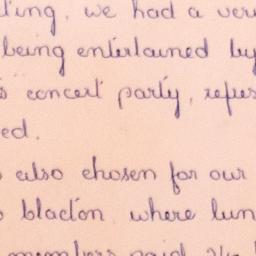 ting, we had a very
being entertained by
concert party, refres
ed.
also chosen for our
blacton where lun
members paid